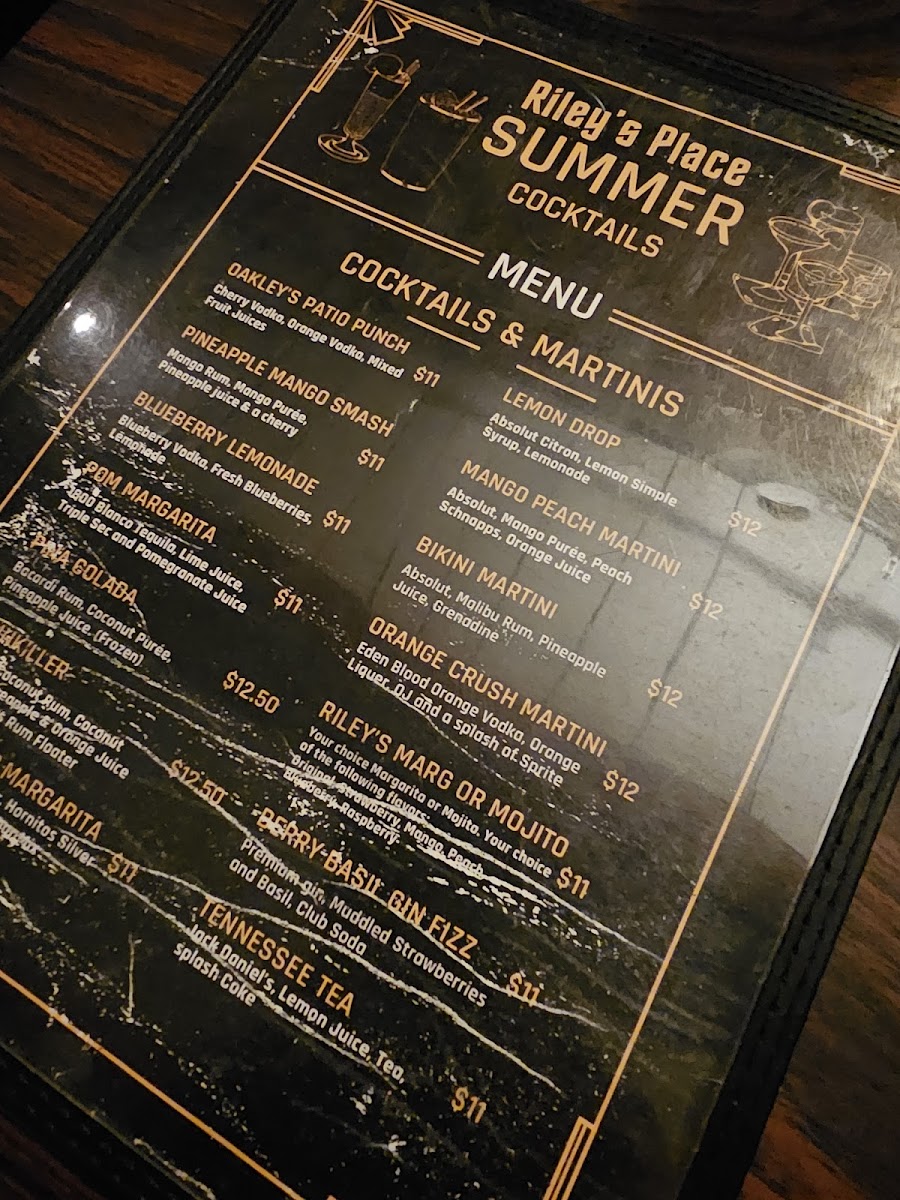 Riley's Place
SUMMER
COCKTAILS
MENU
COCKTAILS & MARTINIS
OAKLEY'S PATIO PUNCH
Cherry Vodka, Orange Vodka, Mixed
Fruit Juices
$11
PINEAPPLE MANGO SMASH
Mango Rum, Mango Purée,
Pineapple juice & a cherry
$11
BLUEBERRY LEMONADE
Blueberry Vodka, Fresh Blueberries,
Lemonade
$11
POM MARGARITA
1800 Blanco Tequila, Lime Juice,
Triple Sec and Pomegranate Juice
$11
PINA COLADA
Bacardi Rum, Coconut Purée,
Pineapple Juice. (Frozen)
$12.50
KILLER
Coconut Rum, Coconut
& Orange Juice
Rum Floater
$12.50
MARGARITA
Hornitos Silver
$11
LEMON DROP
Absolut Citron, Lemon Simple
Syrup, Lemonade
$12
MANGO PEACH MARTINI
Absolut, Mango Purée, Peach
Schnapps, Orange Juice
$12
BIKINI MARTINI
Absolut, Malibu Rum, Pineapple
Juice, Grenadine
$12
ORANGE CRUSH MARTINI
Eden Blood Orange Vodka, Orange
Liquer, OJ and a splash of Sprite
$12
RILEY'S MARG OR MOJITO
Your choice Margarita or Mojito. Your choice
of the following flavors
Original, Strawberry, Mango, Peach
Blueberry, Raspberry
$11
BERRY-BASIL GIN FIZZ
Premium gin, Muddled Strawberries
and Basil, Club Soda
$11
TENNESSEE TEA
Jack Daniel's, Lemon Juice, Tea,
splash Coke
$11